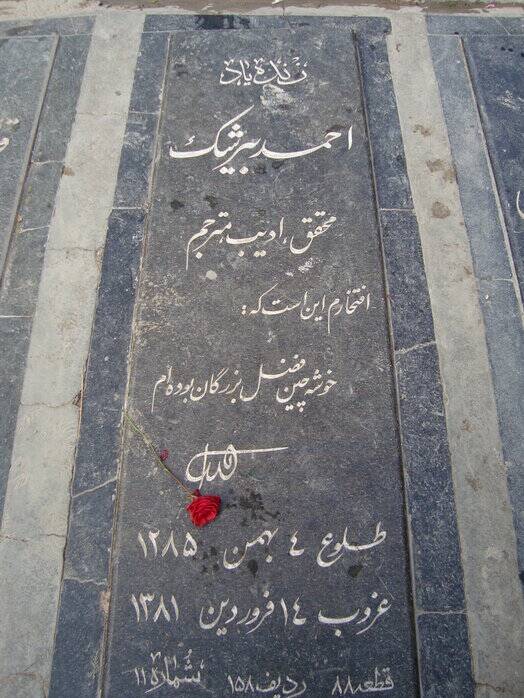 زنده یاد
احمد بیرشک
محقق، ادیب، مترجم
افتخارم این است که:
خوشه چین فضل بزرگان بوده ام
طلوع ٤ بهمن ۱۲۸۵
غروب ۱٤ فروردین ۱۳۸۱
قطعه ۸۸ ردیف ۱۵۸ شماره ۱۱